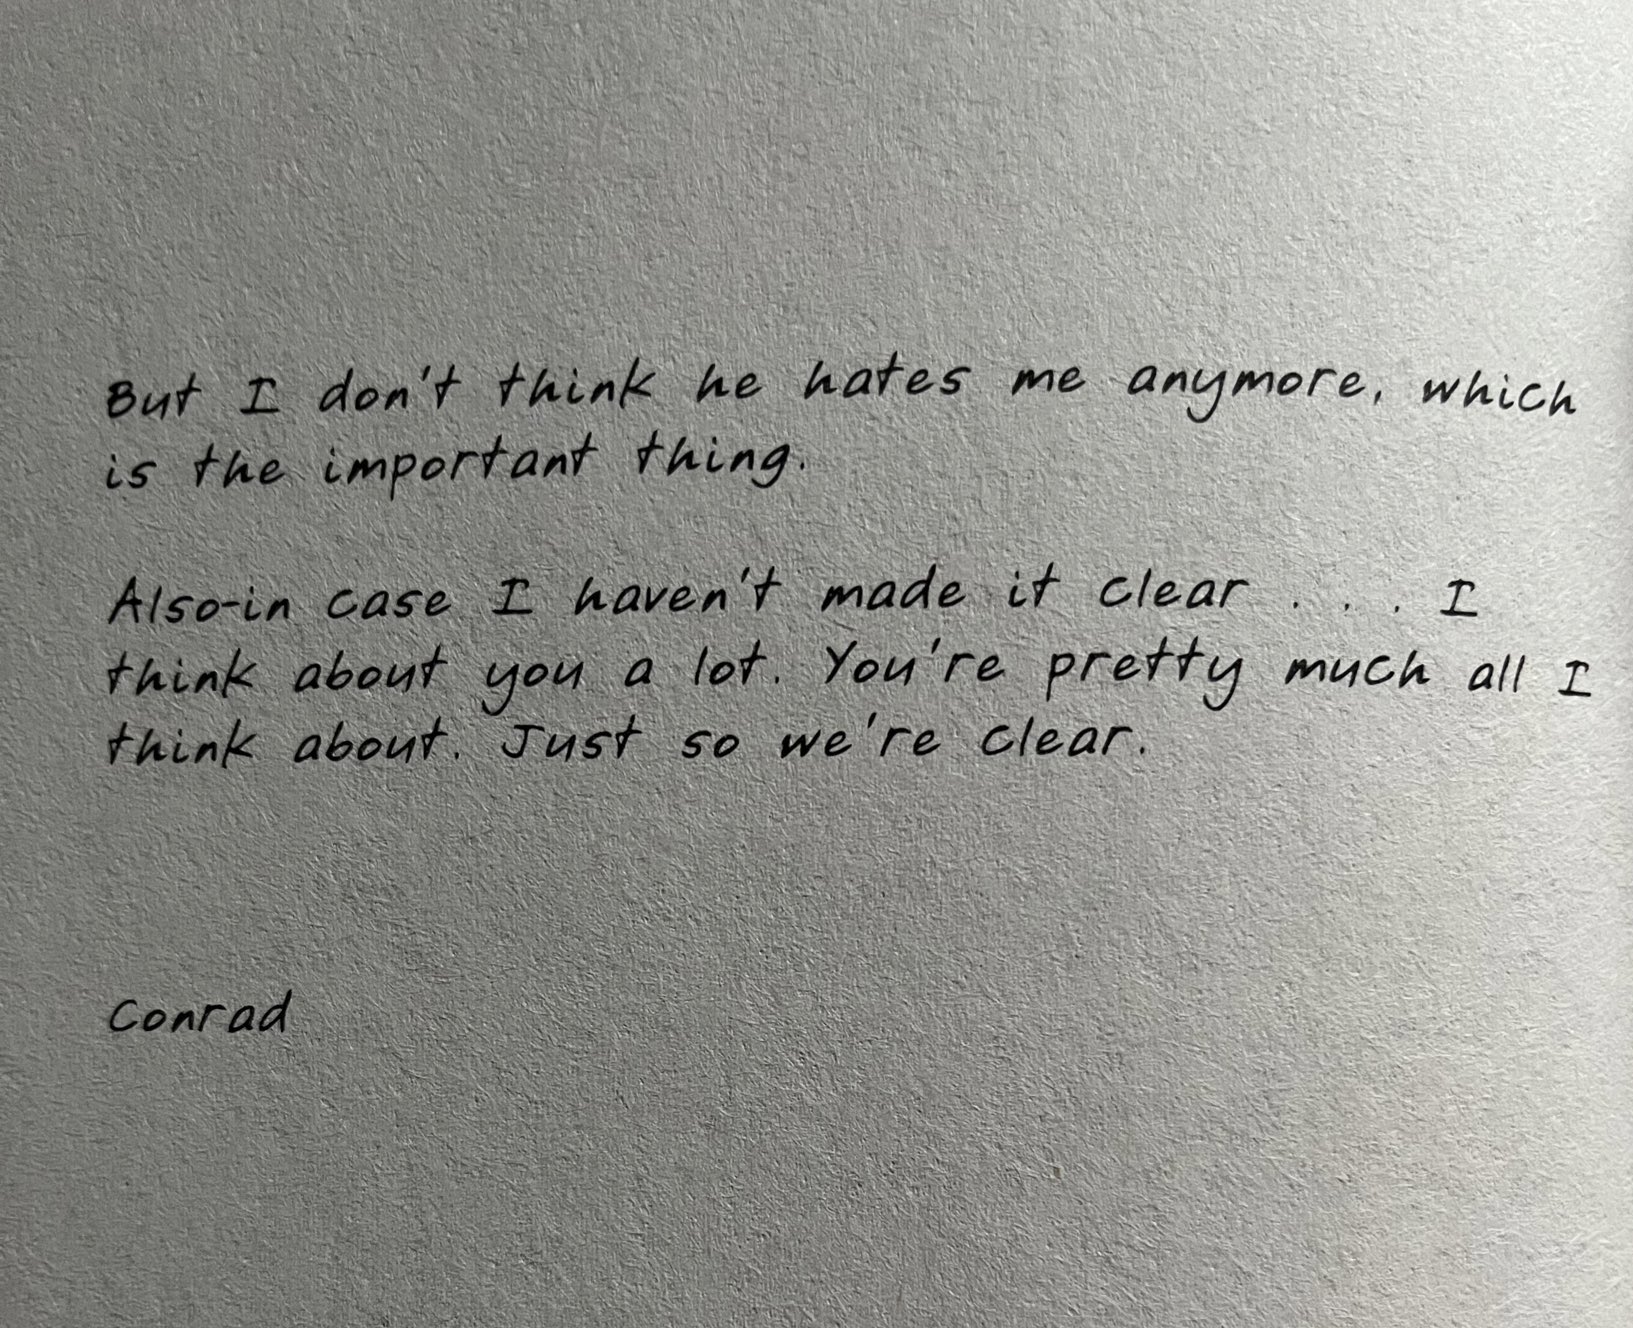 But I don't think he hates me anymore, which
is the important thing.
Also-in case I haven't made it clear . . . I
think about you a lot. You're pretty much all I
think about. Just so we're clear.
Conrad